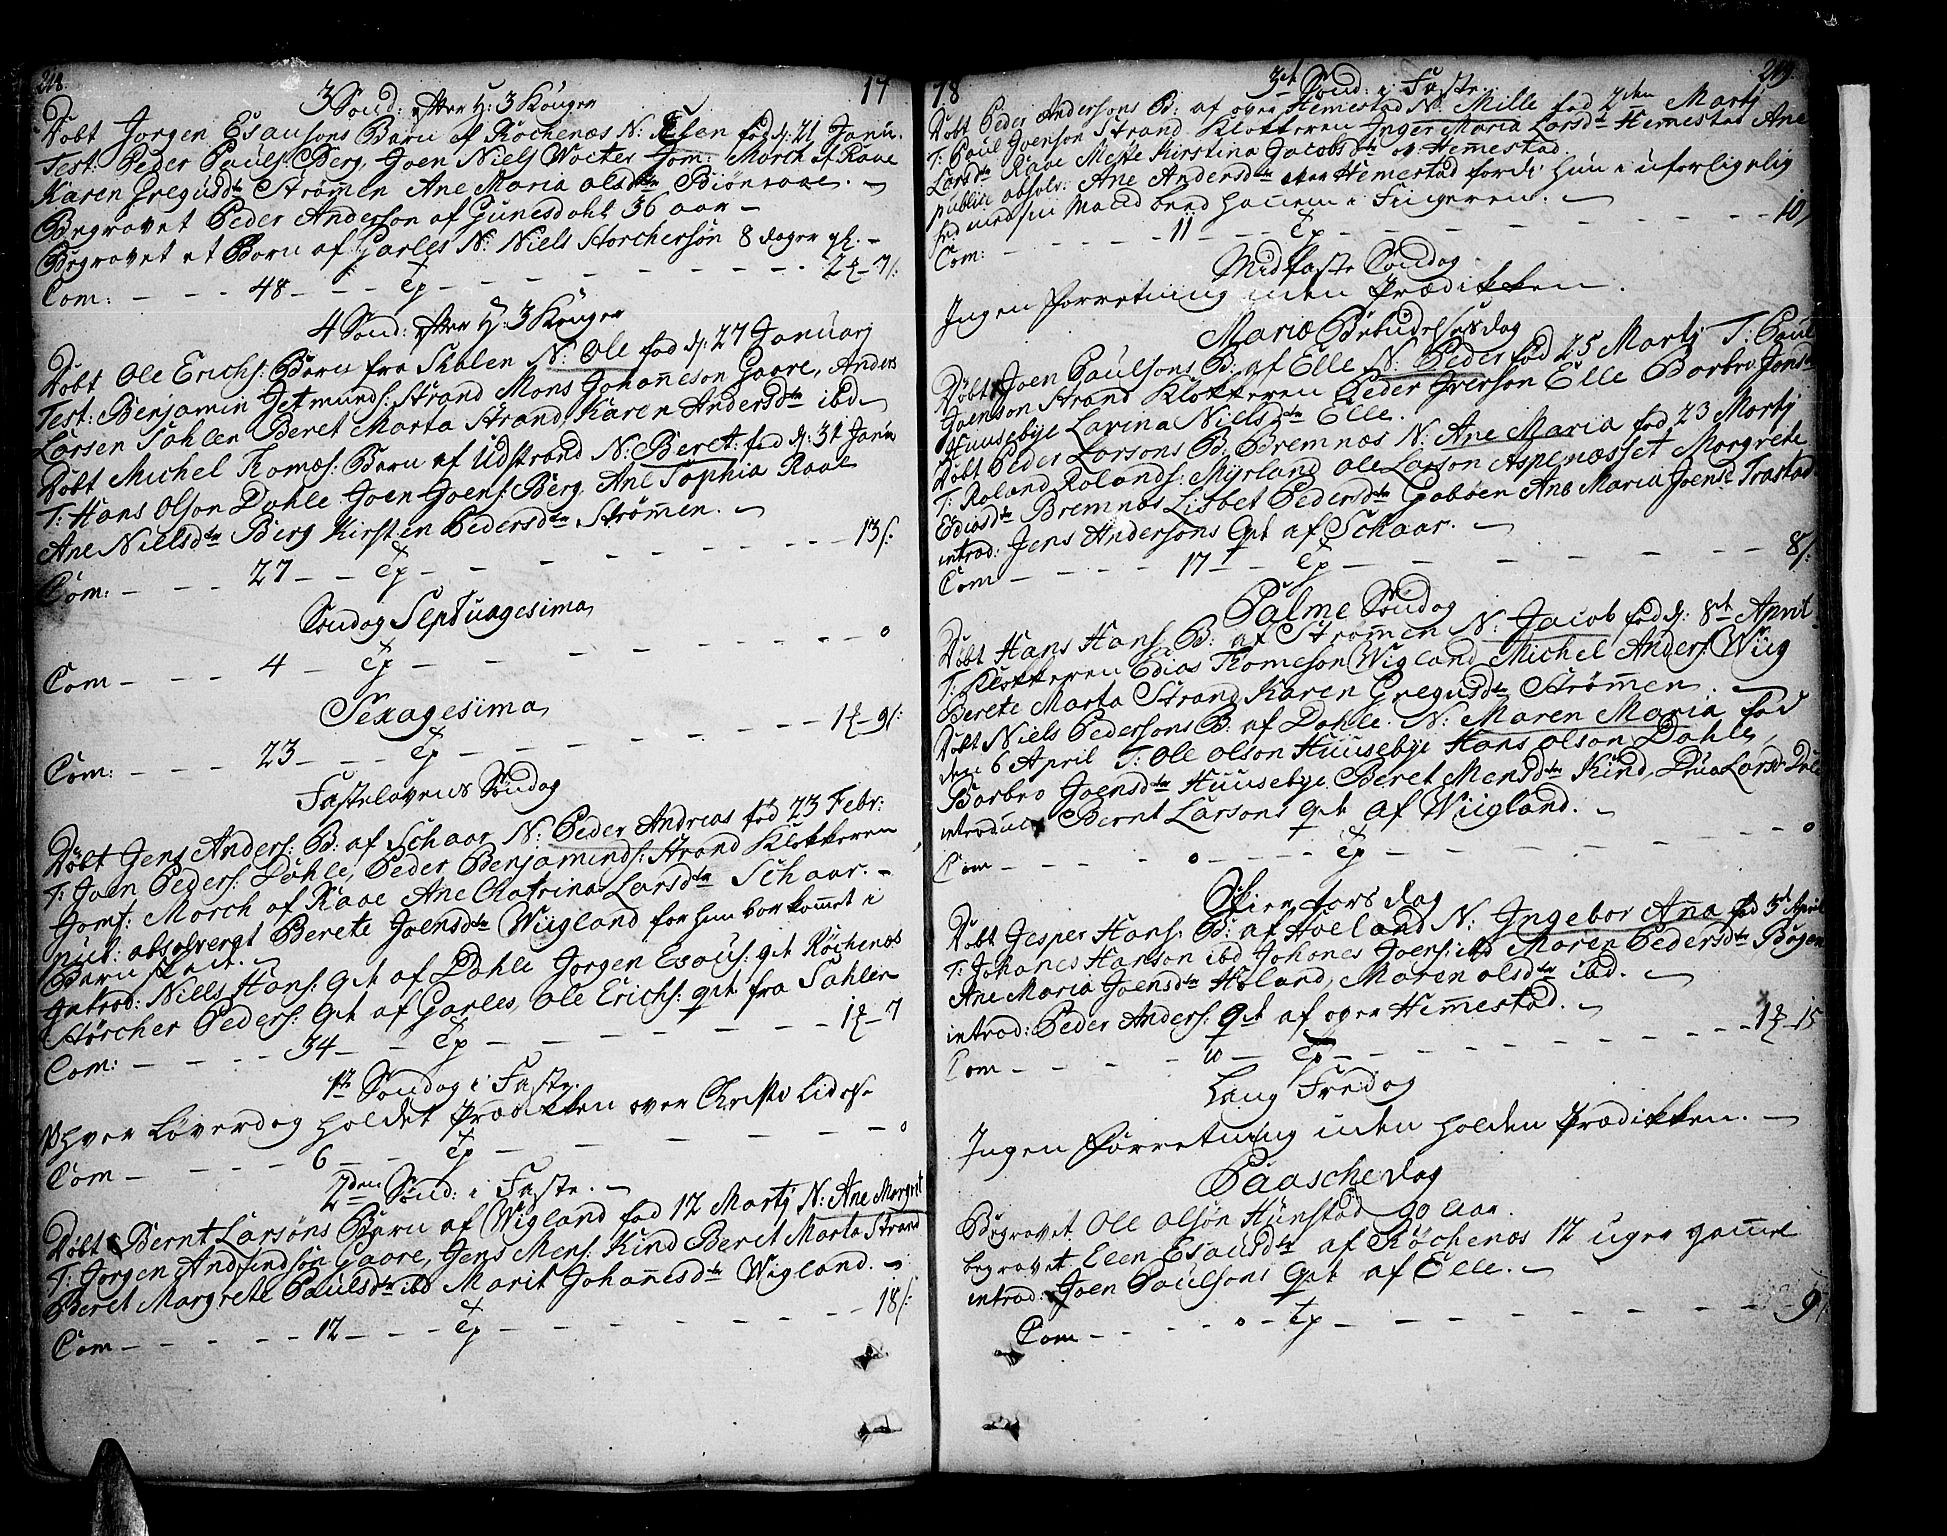 218.
17
3 Sønd: efter H: 3 Konger
Døbt Jørgen Esausøns Barn af Røchenæs N: Elen fød d: 21 Janu.
Test: Peder Pauls: Berg, Joen Niels Wocter Jom: Morch af Raae
Karen Gregusdtr Strømen Ane Maria olsdtr Biønraae. –
Begravet Peder Anderson af Gunesdahl 36 aar –
Begravet et Barn af Garles N: Niels Storchersøn 8 dager gl. –
Com: – – – 48 – – – Exp – – – 2 – 7 /:
4 Sønd: efter H: 3 Konger
Døbt Ole Erichs: Barn fra Sahlen N: Ole fød d: 27 Januarj
Test: Benjamin Jetmunds: Strand Mons Johañeson Gaare, Anders
Larsen Sahlen Beret Marta Strand Karen Andersdtr ibd –
Døbt Michel Thomæs: Barn af Udstrand N: Beret: fød d: 31 Janu
T: Hans Olson Dahle Joen Joens: Berg Ane Sophia Raae
Ane Nielsdtr Berg Kirsten Pedersdtr Strømen. –
Com: – – – 27 – – Exp – – – 13 /:
Søndag Septuagesima
Com – – – 4 – Exp – – – 0
Sexagesima
Com: – – – 23 – – – Exp – – – 1 – 9 /:
Fastelavens Søndag
Døbt Jens Anders: B: af Schaar N: Peder Andreas fød 23 Febr:
T: Joen Peders: Dahle, Peder Benjamins: Strand Klokkeren
Jomf: Morch af Raae Ane Chatrina Larsdtr Schaar. –
pub: absolveret Berete Joensdtr Wiigland for hun var kommet i
Barn
Introd: Niels Hans: qvt af Dahle Jorgen Esaus: qvt Røchenæs
Størcher Peders: Qvt af Garles, Ole Erichs: qvt fra Sahlen
Com: – – – 34 – – Exp – – – 1 – 7
1te Søndag i Faste.
hver Løverdag holdet Prædikken over Christi Lidelse
Com – – – 6 – – Exp – – – 0
2den Sønd: i Faste. –
Døbt Bernt Larsøns Barn af Wigland fød 12 Martj N: Ane Margret
T: Jorgen Andfindsøn Gaare, Jens Mens: Kind Beret Marta Strand
Beret Margrete Paulsdtr ibd Marit Johañesdtr Wigland. –
Com – – – 12 – – – Exp – – – 18 /:
18
219.
3de Sønd: i Faste
Døbt Peder Andersons B: af øver Hemestad N: Mille fød 2den Martj
T: Paul Joenson Strand Klokkeren Inger Maria Larsdtr Hemestad Ane
Larsdtr Raae Mette Kirstina Jacobsdtr Hemestad.
publice absolv: Ane Andersdtr Hemestad fordi hun i uforligelig
hed med sin Mand beed hanem i Fingeren. –
Com: – – – 11 – – – Exp – – – 10 /
Midfaste Søndag
Ingen Forretning uden Prædikken.
Mariæ Bebudelsesdag
Døbt Joen Paulsons B: af Elle N: Peder fød 25 Martj T: Paul
Joenson Strand Klokkeren Peder Iverson Elle Barbro Jonsd
Huusebye Lavina Nielsdtr Elle.
Døbt Peder Larsons B: Bremnæs N: Ane Maria fød 23 Martj
T: Roland Rolands: Myrland Ole Larson Aspenæsset Margrete
Ediasdtr Bremnæs Lisbet Pedersdtr Gabøen Ane Maria Joensdtr Trastad
introd: Jens Andersons Qvt af Schaar. –
Com – – – 17 – – Exp – – – 8 /:
Palme Søndag
Døbt Hans Hans: B: af Strømen N: Jacob fød d: 8de April
T: Klokkeren Edias Thomeson Wigland Michel Anders: Wiig
Berete Marta Strand Karen Gregusdtr Strømen. –
Døbt Niels Pedersons B: af Dahle. N: Maren Maria fød
den 6 April T: Ole Olson Huusebye Hans Olson Dahle
Barbro Joensdtr Huusebye Beret Mensdtr Kind, Larsd
introduc: Bernt Larsons qvt af Wiigland. –
Com – – – 0 – – – Exp – – – 0
Skiertorsdag
Døbt Jesper Hans: B: af Hoeland N: Ingebor Ana fød 3de April
T: Johanes Hanson ibd Johanes Joens: ibd Maren Pedersdtr Bogen
Ane Maria Joensdtr Høland, Maren olsdtr ibd. –
introd: Peder Anders: Qvt af øver Hemestad. –
Com – – – 10 – – Exp – – – 1 – 15
Lang Fredag
Ingen Forretning uden holden Prædikken. –
Paasche dag
Begravet Ole Olsøn Hunstad 90 aar.
begravet Elen Esausdtr af Røchenæs 12 uger gamel
introd: Joen Paulsons Qvt af Elle. –
Com – – – 0 – Exp – – – 9 /